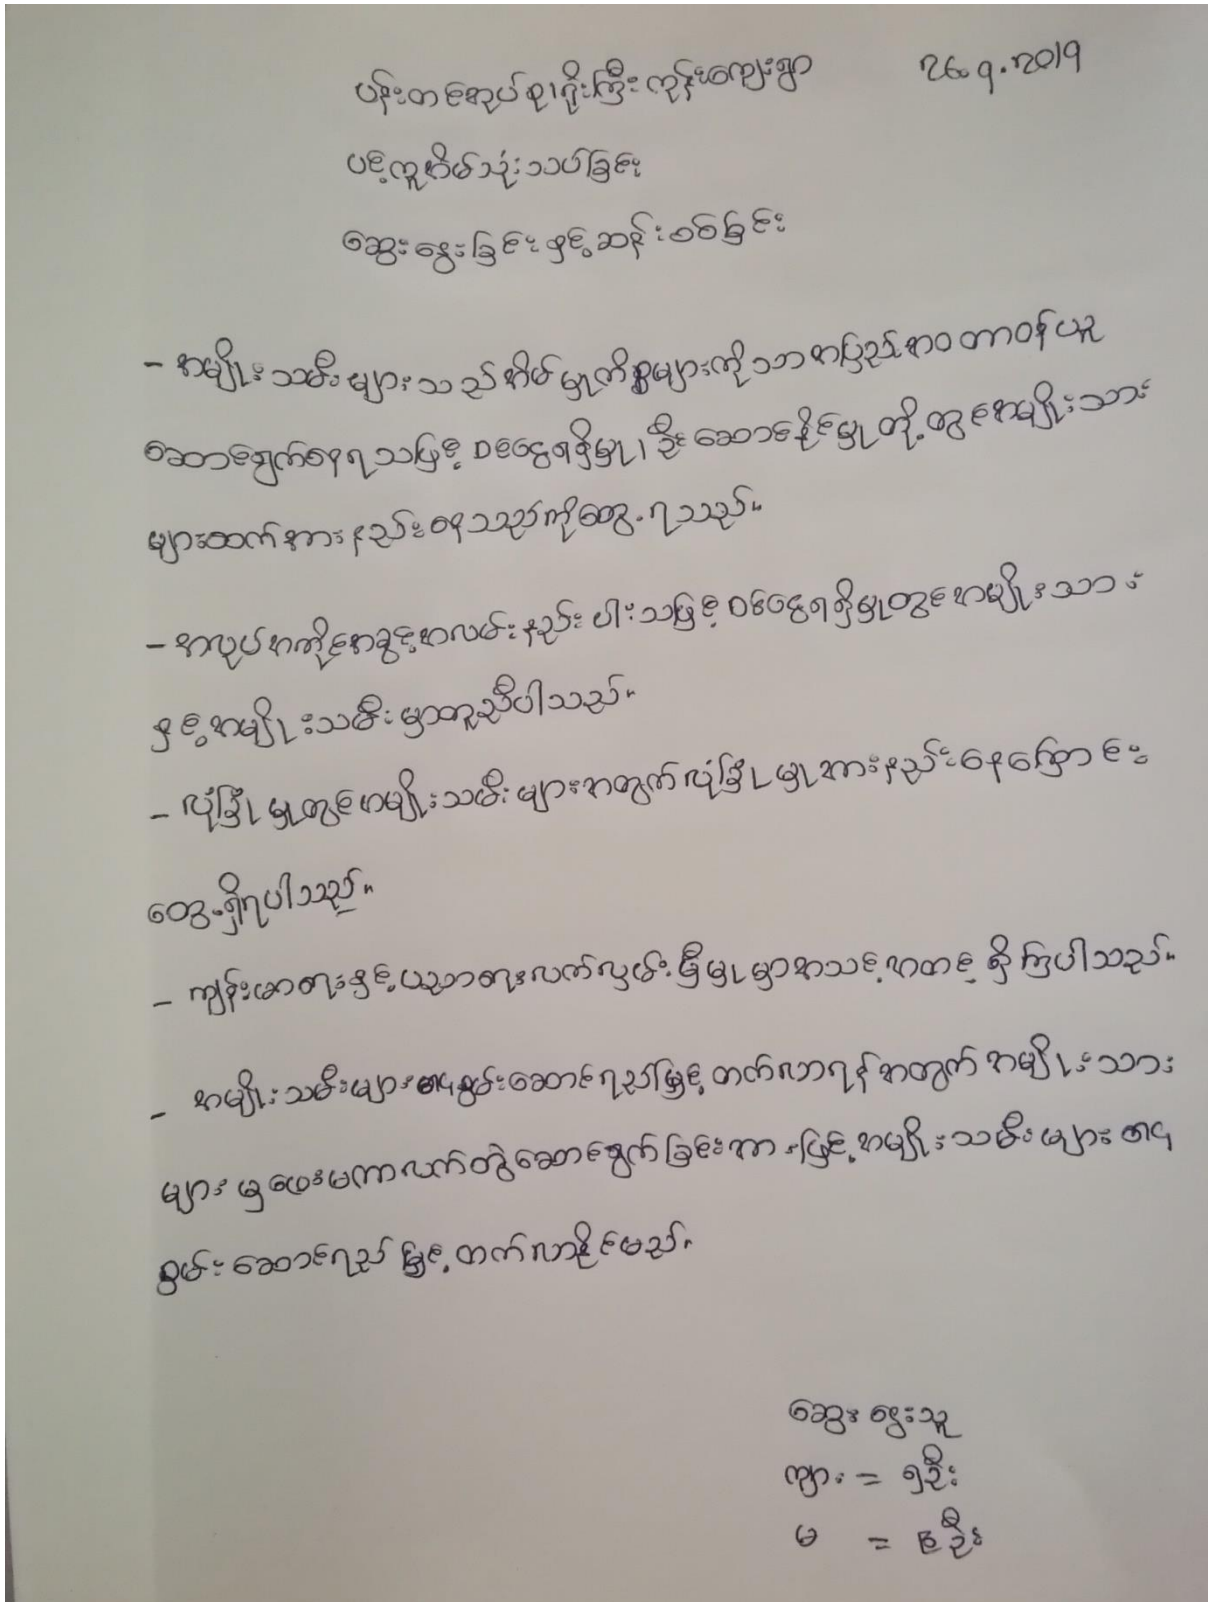 ပန်းတင်အုပ်စု၊ ရိုးကြီးကုန်းကျေးရွာ 26.9.2019
ပင့်ကူအိမ်သုံးသပ်ခြင်း
ဆွေးနွေးခြင်းနှင့်ဆန်းစစ်ခြင်း
- အမျိုးသမီးများသည်အိမ်မှုကိစ္စများကိုသာအပြည့်အဝတာဝန်ယူ
ဆောင်ရွက်နေရသဖြင့်ဝင်ငွေရရှိမှု၊ဦးဆောင်နိုင်မှုတို့တွင်အမျိုးသား
များထက်အားနည်းနေသည်ကိုတွေ့ရသည်။
- အလုပ်အကိုင်အခွင့်အလမ်းနည်းပါးသဖြင့်ဝင်ငွေရရှိမှုတွင်အမျိုးသား
နှင့်အမျိုးသမီးမှာတူညီပါသည်။
- လုံခြုံမှုတွင်အမျိုးသမီးများအတွက်လုံခြုံမှုအားနည်းနေကြောင်း
တွေ့ရှိရပါသည်။
- ကျန်းမာရေးနှင့်ပညာရေးလက်လှမ်းမှီမှုမှာအသင့်အတင့်ရှိကြပါသည်။
- အမျိုးသမီးများ၏စွမ်းဆောင်ရည်မြှင့်တက်လာရန်အတွက်အမျိုးသား
များမှဖေးမကာလက်တွဲဆောင်ရွက်ခြင်းအားဖြင့်အမျိုးသမီးများ၏
စွမ်းဆောင်ရည်မြှင့်တက်လာနိုင်မည်။
ဆွေးနွေးသူ
ကျား = ၅ဦး
မ = ၉ဦး